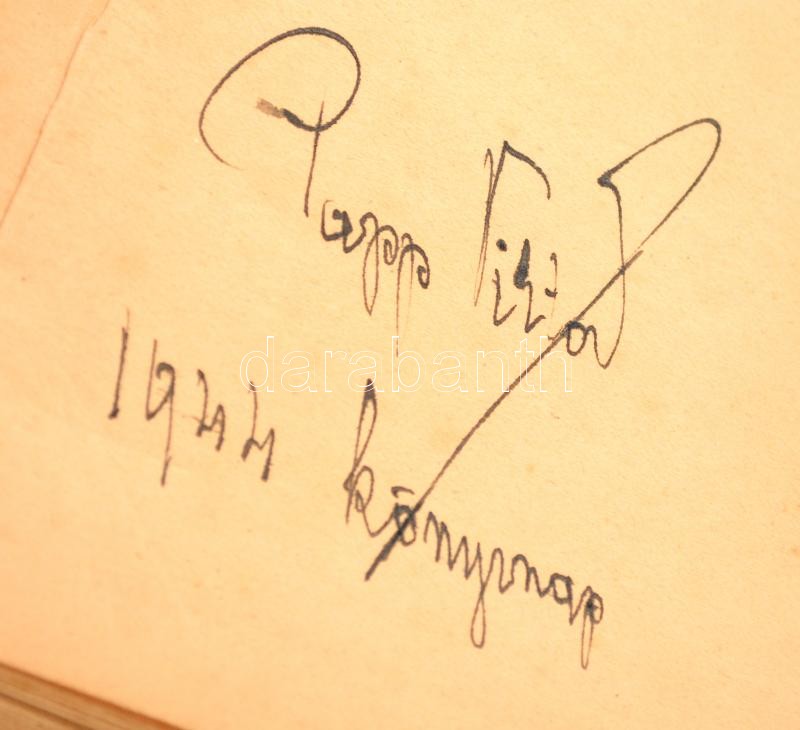 Papp Viktor
darabanth
1944 könyvnap